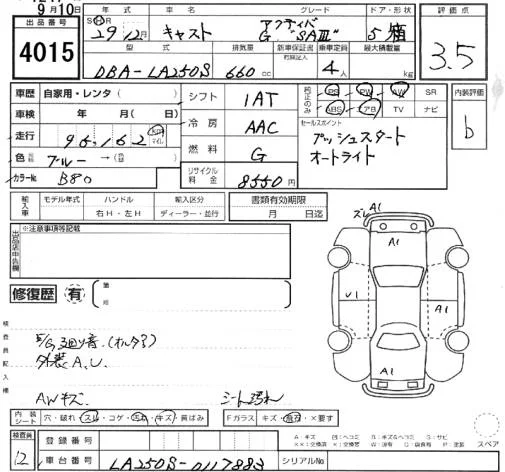 9月10日
出品番号
4015
年式
車名
グレード
ドア・形状
評価点
S H R
29年12月
キャスト
アクティバ
G "SAⅢ"
5
箱
3.5
型式
排気量
新車保証書
有(同記入)
乗車定員
最大積載量
DBA-LA250S
660 cc
4人
kg
車歴
自家用・レンタ( )
シフト
1AT
純正のみ
PS PW AW SR
内装評価
車検
年 月( 日)
冷房
AAC
ABS エアB TV ナビ
b
走行
95,162
km マイル
セールスポイント
プッシュスタート
オートライト
燃料
G
色
ブルー→(
カラーNo.
B80
リサイクル料金
8550円
輸入車
モデル年式
ハンドル
右H・左H
輸入区分
ディーラー・並行
書類有効期限
月 日迄
出品店申告欄
※注意事項等記載
修復歴
有
箇所
検査員記入欄
E/G廻り音(オルタ?)
外装A,U
AWキズ
シート汚れ
ズレA1
A1
A1
U1
A1
内装シート
穴・破れ・スレ・コゲ・汚れ・キズ・黄ばみ
Fガラス
キズ・飛石・×要す
A:キズ
検査員
12
登録番号
車台番号
LA250S-0117883
シリアルNo.
スペア